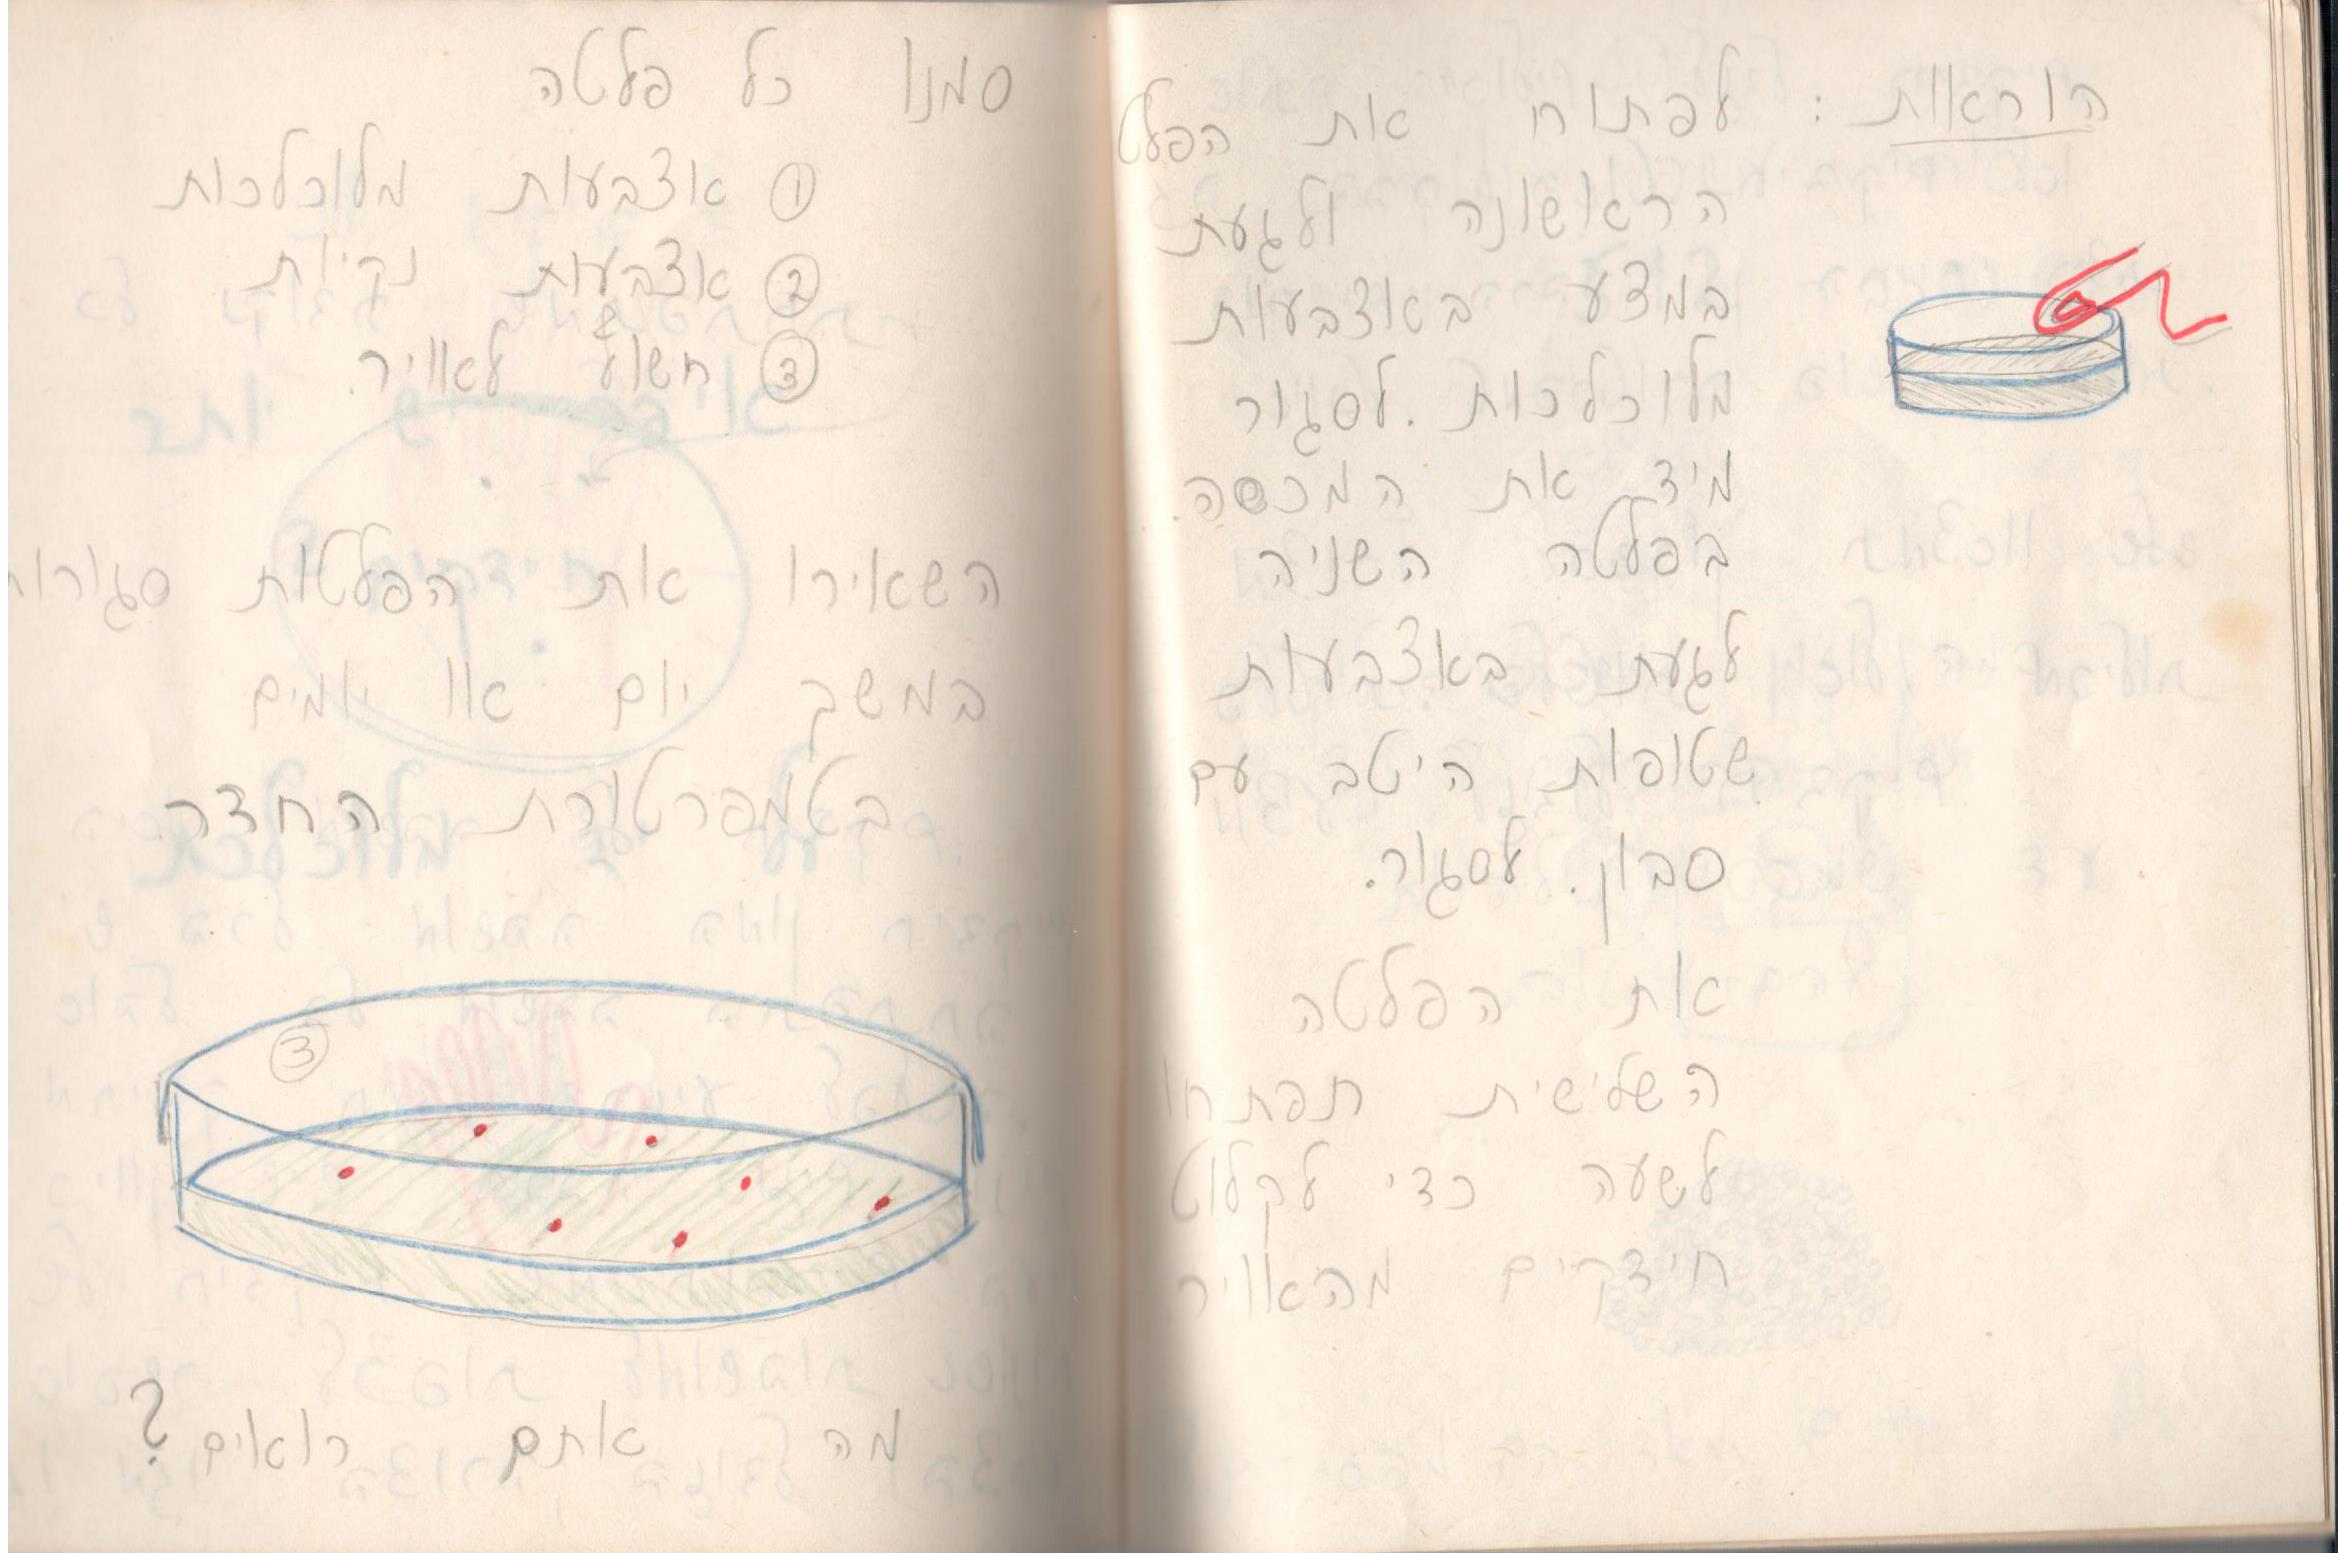 הוראות: לפתוח את הפלט
הראשונה ולגעת
במצע באצבעות
מלוכלכות. לסגור
מיד את המכסה.
בפלטה השניה
לגעת באצבעות
שטופות היטב עם
סבון. לסגור.
את הפלטה
השלישית תפתחו
לשעה כדי לקלוט
חידקים מהאוויר
סמנו כל פלטה
① אצבעות מלוכלכות
② אצבעות נקיות
③ חשוף לאוויר.
השאירו את הפלטות סגורות
במשך יום או יומים
בטמפרטורת החדר.
③
מה אתם רואים?